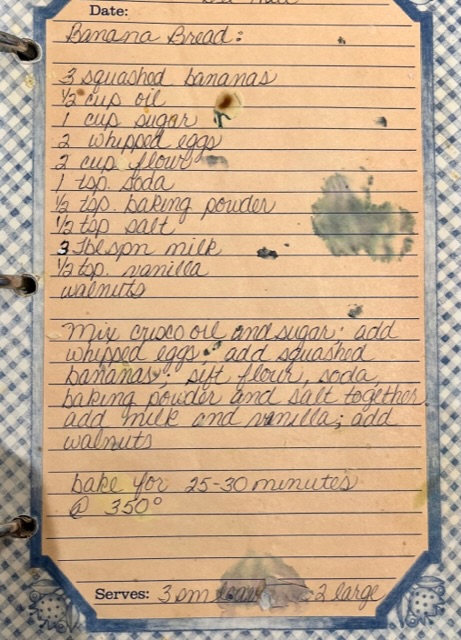 Date:
Banana Bread:
3 squashed bananas
1/2 cup oil
1 cup sugar
2 whipped eggs
2 cup flour
1 tsp. soda
1/2 tsp. baking powder
1/2 tsp salt
3 Tblspn milk
1/2 tsp. vanilla
walnuts
Mix crisco oil and sugar; add
whipped eggs; add squashed
bananas; sift flour, soda,
baking powder and salt together
add milk and vanilla; add
walnuts
bake for 25-30 minutes
@ 350°
Serves: 3 sm 2 large